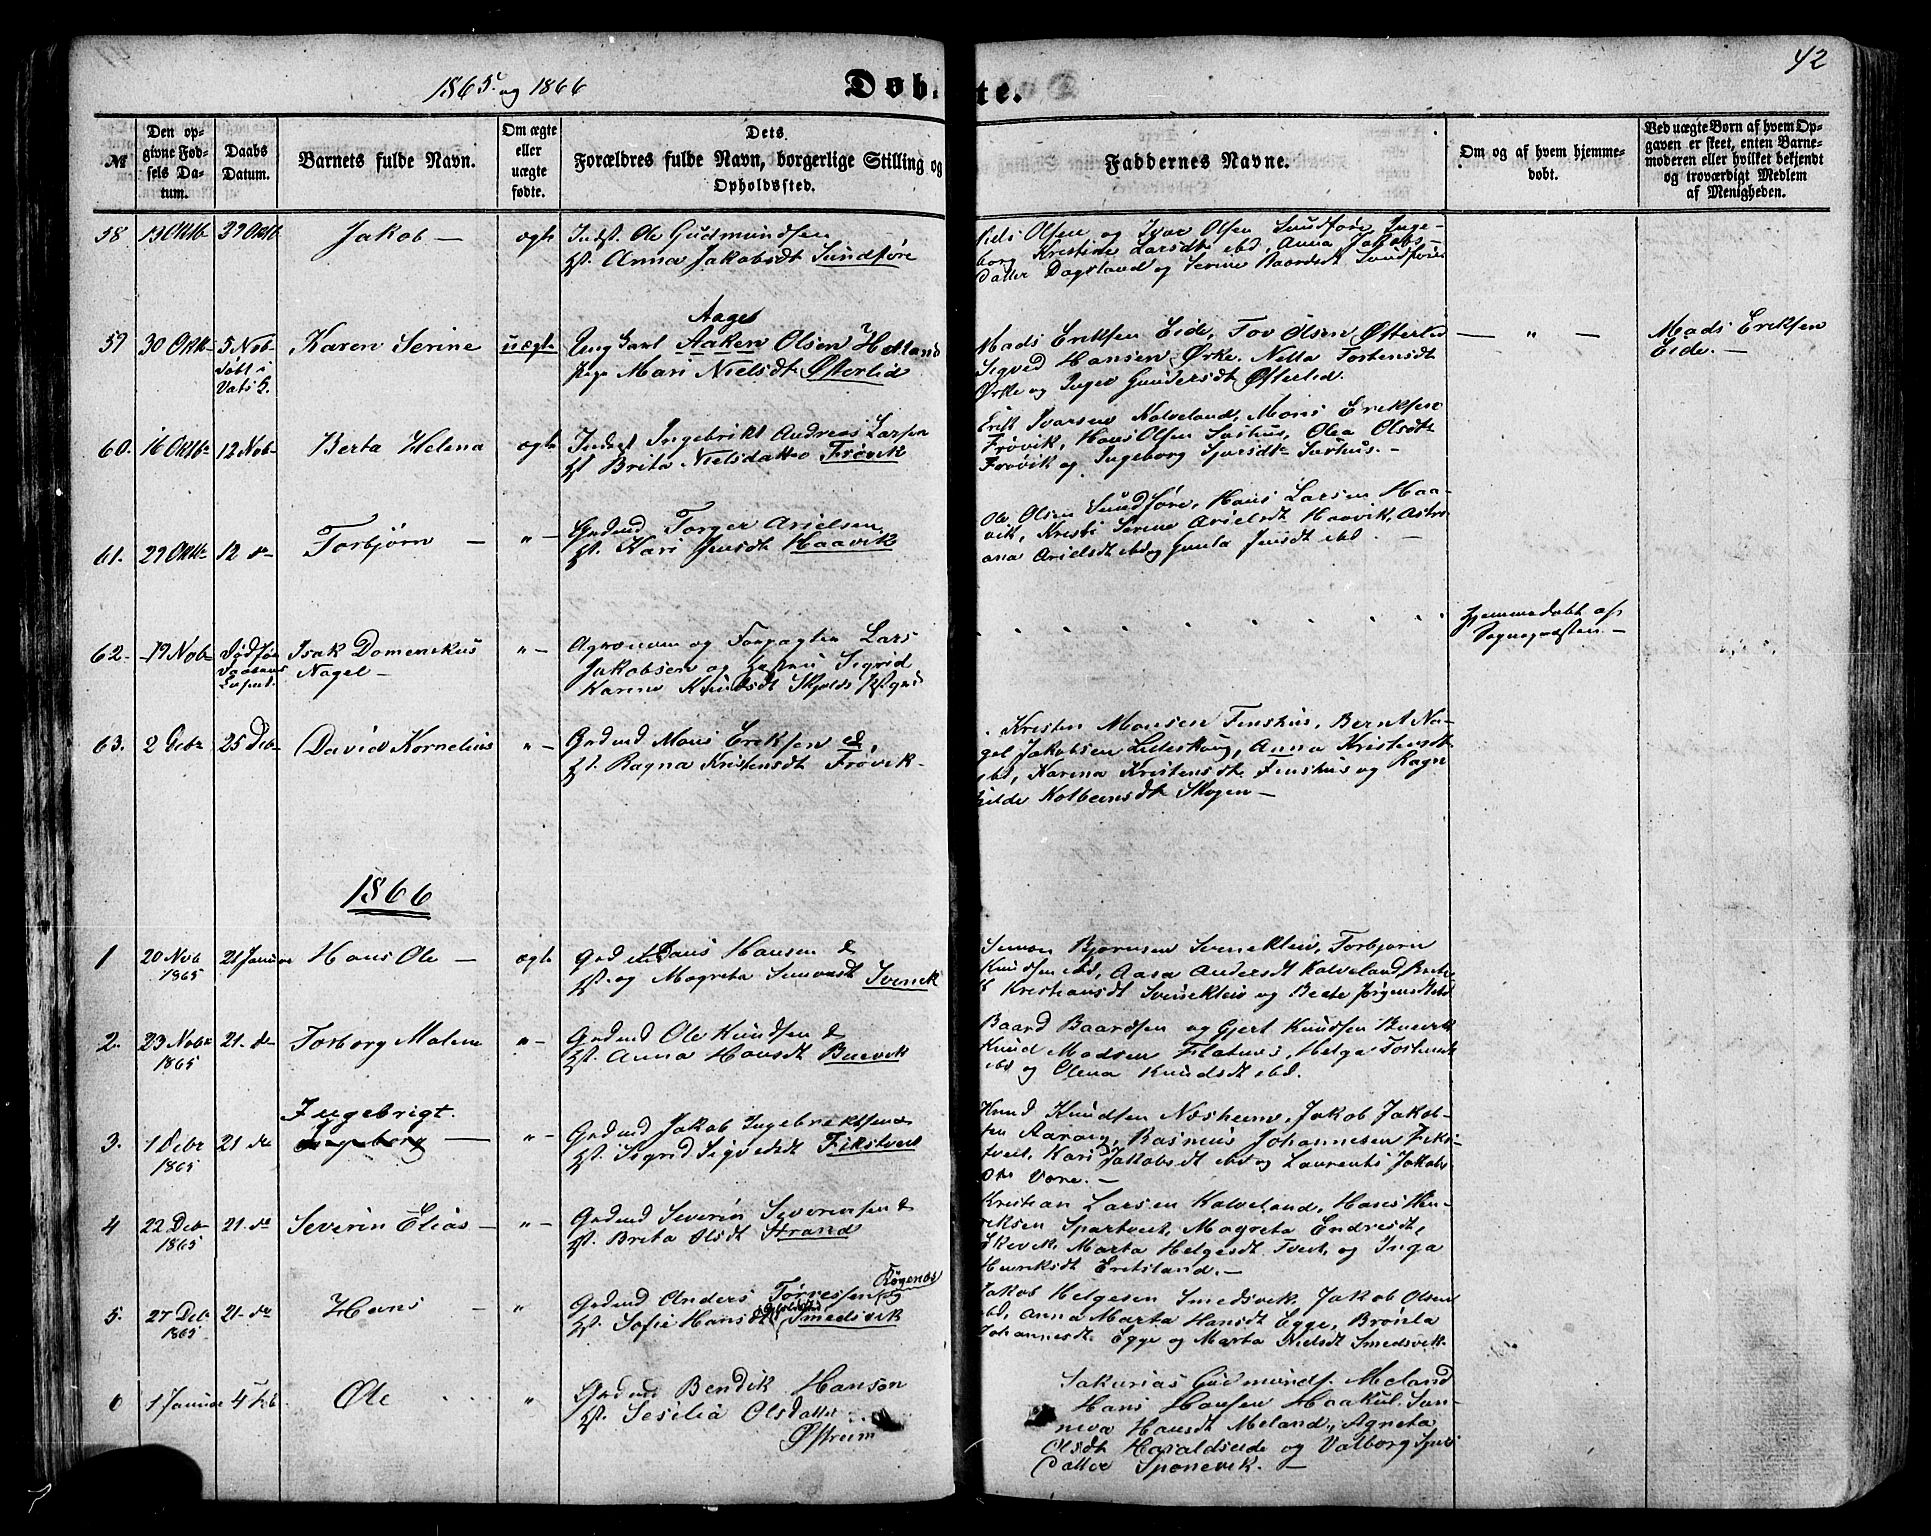 42
1865 og 1866
Døbte.
№
Den opgivne Fødsels Datum.
Daabs Datum.
Barnets fulde Navn.
Om ægte eller uægte fødte.
Dets Forældres fulde Navn, borgerlige Stilling og Opholdssted.
Faddernes Navne.
Om og af hvem hjemmedøbt.
Ved uægte Børn af hvem Opgaven er skeet, enten Barnemoderen eller hvilket bekjendt og troværdigt Medlem af Menigheden.
58
Jakob —
ægte
Indst. Ole Gudmundsen
Anna Jakobsdt Sundføre
Olsen og Ivar Olsen Sundføre, Inge-
borg Kristine Larsdt ibd, Anna Jakobs-
datter Dagsland og Serine Baardsdt Sundføre
59
30 Oktb
5 Nob
døbt i
Vats K.
Karen Serine
uægte
Aage
Ung Karl Aaken Olsen Hetland
Pige Mari Nielsdt Østerlid
Mads Eriksen Eide, Tov Olsen Østerlid
Sigved Hansen Ørke. Netta Torkensdt
Ørke og Inger Gundersdt Østerlid.
— " —
Mads Eriksen
Eide. —
60.
16 Oktb
12 Nob
Berta Helena
ægte
Indst Ingebrikt Andreas Larsen
Brita Nielsdatter Frøvik
Erik Ivarsen Kalveland, Mons Eriksen
Frøvik, Hans Olsen Sørhus, Olea Olsdt
Frøvik og Ingeborg Sjursdt Sørhus. —
61.
29 Oktb
12 do
Torbjørn —
" —
Gbdmd Torger Arielsen
Kari Jensdt Haavik
Ole Olsen Sundføre, Hans Larsen Haa-
vik, Kristi Serine Arielsdt Haavik, Astri
Anna Arielsdt ibd og Gunla Jensdt ibd
62.
19 Nob
Isak Domenikus
Nagel —
" —
Agronom og Forpagter Lars
Jakobsen og Hustru Sigrid
Karine Knudsdt Skjolds Pgrd
Hjemmedøbt af
Sognepræsten. —
63.
2
25 Deb
David Kornelius
" —
Gbdmd Mons Eriksen &
Ragna Kristensdt Frøvik —
Kristen Monsen Finshus, Bernt Na-
gel Jakobsen Lilleskoug, Anna Kristensdt
ibd, Karina Kristensdt Finshus og Ragn
hilde Kolbeinsdt Skogen —
1866
1
20 Nob
1865
21 Januar
Hans Ole —
ægte
Gbdmd Hans Hansen &
og Magreta Simonsdt Svenek
Simon Bjørnsen Svenekleiv, Torbjørn
Knudsen ibd, Aasa Andersdt Kalveland,
Kristiansdt Svenekleiv og Beate Jørgensdt ibd
2.
23 Nobr
1865
21. do
Torborg Malene
" —
Gbdmd Ole Knudsen &
Anna Hansdt Buevik
Baard Baardsen og Gjert Knudsen Buevik
Knud Madsen Flatnes, Helga Torkensdt
ibd og Olena Knudsdt ibd.
3.
1 Debr
1865
21 do
Ingebrigt.
Ingeborg —
" —
Gbdmd Jakob Ingebriktsen &
Sigrid Sigvedsdt Fikstveit
Knud Knudsen Næsheim, Jakob Jakob-
sen Aarøen, Rasmus Johannesen Fiks-
tveit, Kari Jakobsdt ibd og Laurentsi Jakobs
dtr Vore. —
4
22 Deb
1865
21. do
Severin Elias —
" —
Gbdmd Severin Severinsen &
Brita Olsdt Strand
Kristian Larsen Kalveland, Hans Hen-
riksen Spartveit, Magreta Endresdt,
Ekevik, Marta Helgesdt Tveit, og Inga
Henriksdt Eretsland. —
5.
27 Deb
1865
21. do
Hans —
"
Røgenæs
Gbdmd Anders Tørresen og
Sofie Hansdt Smedsvik
Jakob Helgesen Smedsvik, Jakob Olsen
ibd, Anna Marta Hansdt Egge, Brønla
Johannesdt Egge og Marta Nielsdt Smedsvik.
6
1 Januar
4 Feb.
Ole
"
Gbdmd Bendik Hansen
Sesilia Olsdatter
Østreim
Sakarias Gudmunds. Meland
Hans Hansen Haakul, Sun-
neva Hansdt Meland, Agneta
Olsdt Haraldseide og Valborg Sjurs
datter Sponevik. —